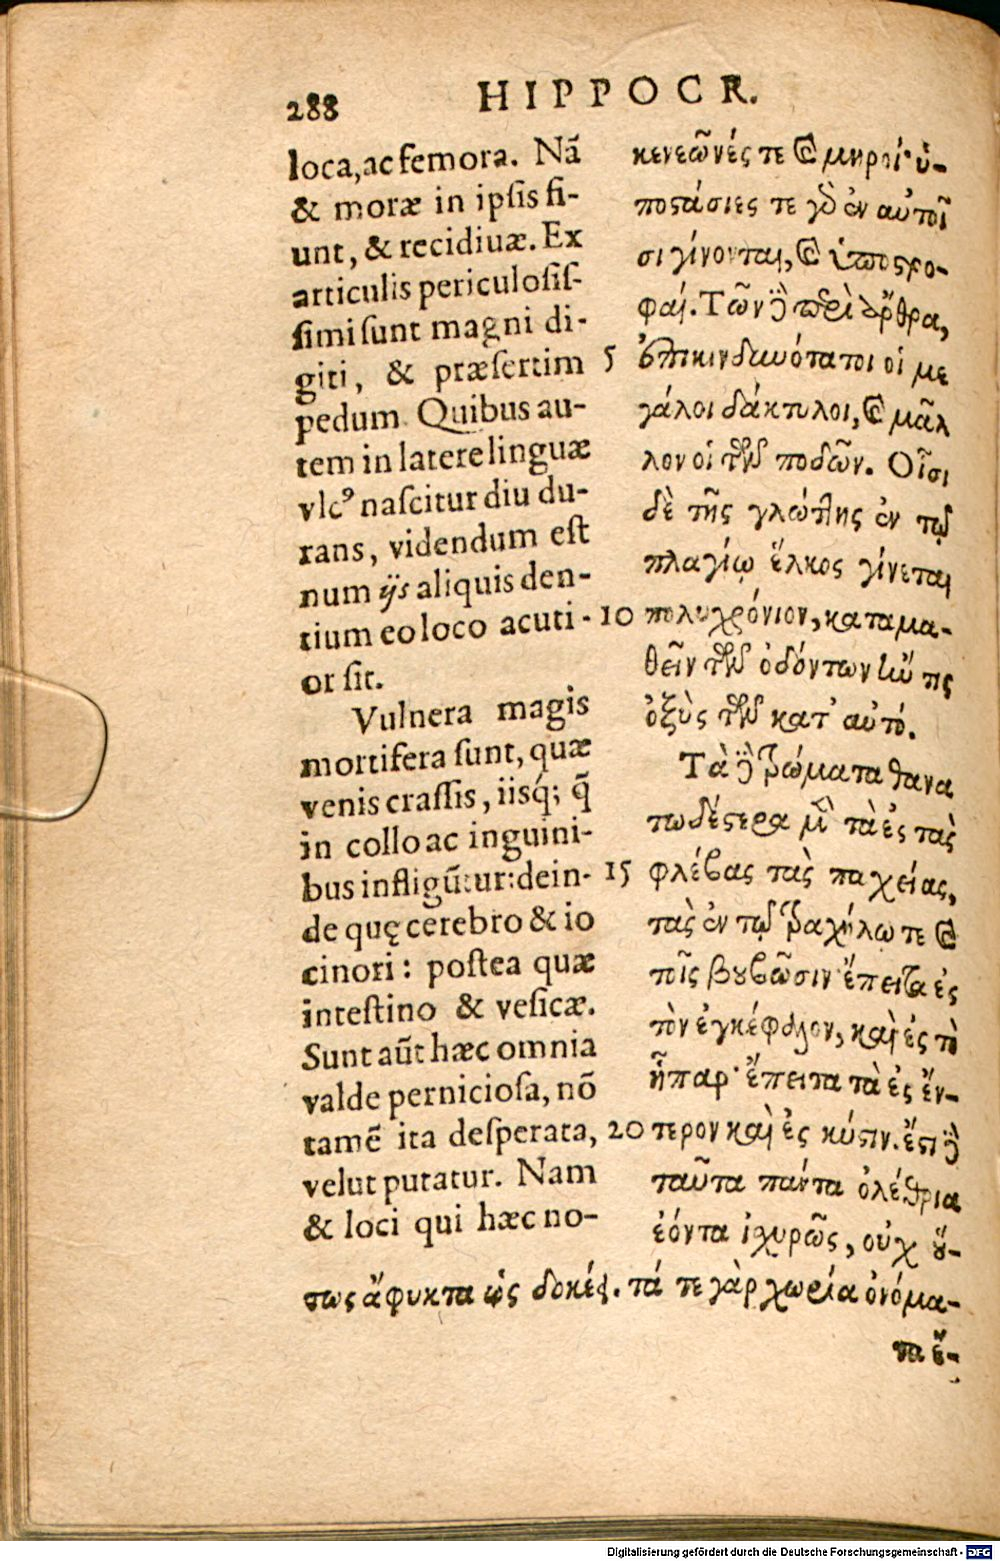 288 HIPPOCR.
loca, ac femora. Nã
& moræ in ipsis fi-
unt, & recidiuæ. Ex
articulis periculosis-
simi sunt magni di-
giti, & præsertim
pedum Quibus au-
tem in latere linguæ
vlcꝰ nascitur diu du-
rans, videndum est
num ijs aliquis den-
tium eo loco acuti-
or sit.
Vulnera magis
mortifera sunt, quæ
venis crassis, iisq́; q̃
in collo ac inguini-
bus infligũtur: dein-
de quę cerebro & io
cinori: postea quæ
intestino & vesicæ.
Sunt aũt hæc omnia
valde perniciosa, nõ
tamẽ ita desperata,
velut putatur. Nam
& loci qui hæc no-
κενεῶνές τε καὶ μηροί· ὑ-
ποστάσιες τε γὸ ἐν αὐτοῖ
σι γίνονται, καὶ ὑποστρο-
φαί. Τῶν δὲ περὶ ἄρθρα,
5 ἐπικινδυνότατοι οἱ με
γάλοι δάκτυλοι, καὶ μᾶλ
λον οἱ τῶν ποδῶν. Οἷσι
δὲ τῆς γλώττης ἐν τῷ
πλαγίῳ ἕλκος γίνεται
10 πολυχρόνιον, καταμα-
θεῖν τῶν ὀδόντων ἢν τις
ὀξὺς τῶν κατ' αὐτό.
Τὰ δὲ τρώματα θανα
τωδέστερα μὲν τὰ ἐς τὰς
15 φλέβας τὰς παχείας,
τὰς ἐν τῷ τραχήλῳ τε καὶ
τοῖς βουβῶσιν· ἔπειτα ἐς
τὸν ἐγκέφαλον, καὶ ἐς τὸ
ἧπαρ· ἔπειτα τὰ ἐς ἔν-
20 τερον καὶ ἐς κύστιν. ἔστι δὲ
ταῦτα πάντα ὀλέθρια
ἐόντα ἰχυρῶς, οὐχ οὕ-
τως ἄφυκτα ὡς δοκέει. τά τε γὰρ χωρία ὀνόμα-
τα ἔ-
Digitalisierung gefördert durch die Deutsche Forschungsgemeinschaft - DFG